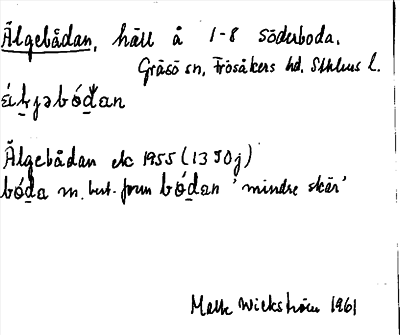 Älgebådan, häll å 1-8 Söderboda.
Gräsö sn, Frösåkers hd, Sthlms l.
Älgebådan ek 1955 (13 J 0j)
bó̱da m. best. form bó̱dan 'mindre skär'
Wickström 1961